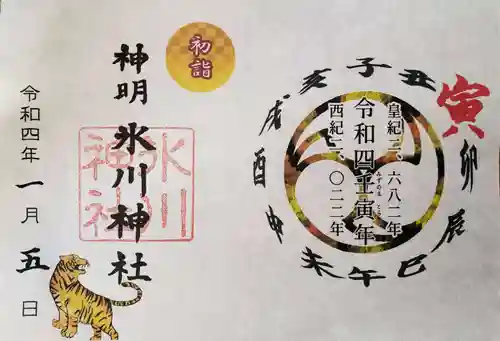 皇紀二、六八二年
令和四壬寅年
みずのえ とら
西紀二、〇二二年
子
丑
寅
卯
辰
巳
午
未
申
酉
戌
亥
初詣
神明 氷川神社
氷川
神社
令和四年 一月五日